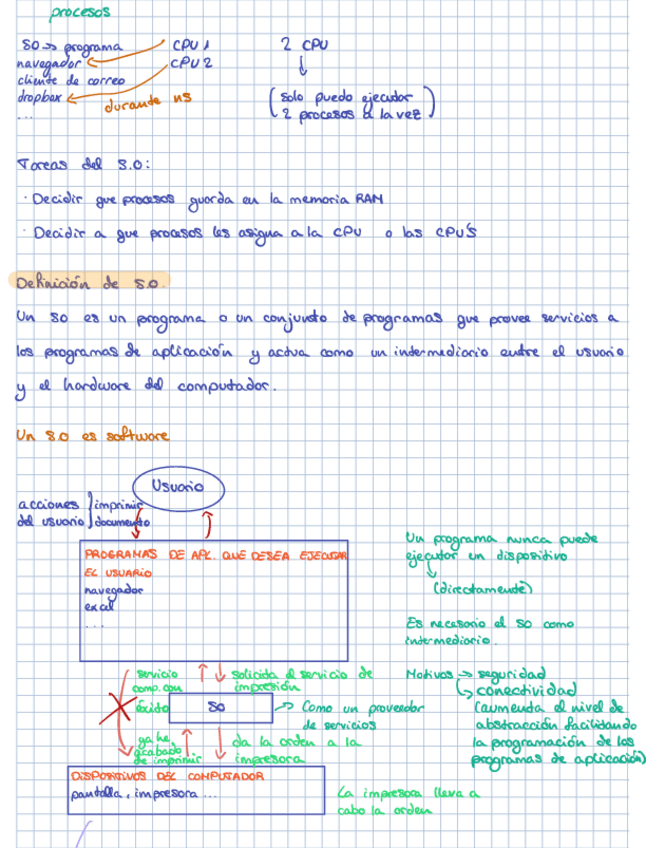 procesos
SO → programa
CPU 1
2 CPU
navegador
CPU 2
cliente de correo
dropbox
durante ns
...
(solo puedo ejecutar
2 procesos a la vez)
Tareas del S.O:
· Decidir que procesos guarda en la memoria RAM
· Decidir a que procesos les asigua a la CPU o las CPU'S
Definición de S.O.
Un SO es un programa o un conjunto de programas que provee servicios a
los programas de aplicación y actua como un intermediario entre el usuario
y el hardware del computador.
Un S.O es software
Usuario
acciones } imprimir
del usuario } documento
PROGRAMAS DE APL. QUE DESEA EJECUTAR
EL USUARIO
navegador
excel
...
Un programa nunca puede
ejecutar un dispositivo
(directamente)
Es necesario el SO como
intermediario.
servicio
comp. con
éxito
solicida el servicio de
impresión
SO
→ Como un proveedor
de servicios
Motivos → seguridad
→ conectividad
(aumenta el nivel de
abstracción facilitando
la programación de los
programas de aplicación)
ya he
acabado
de imprimir
da la orden a la
impresora
DISPOSITIVOS DEL COMPUTADOR
pantalla, impresora ...
La impresora lleva a
cabo la orden